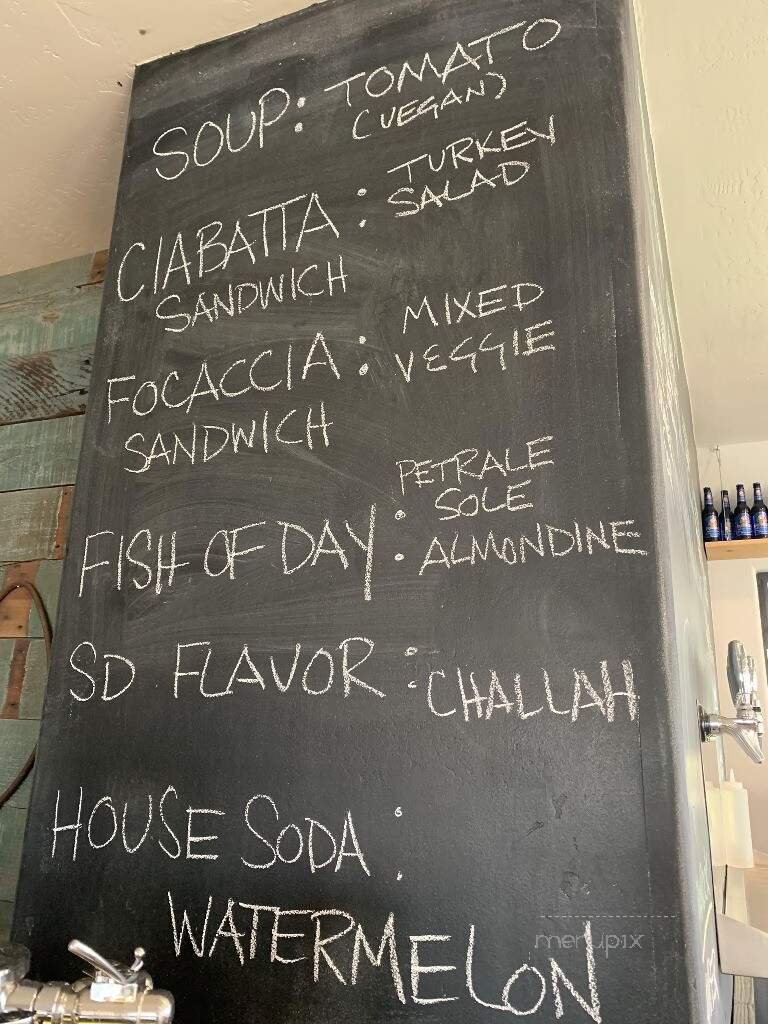 SOUP: TOMATO
(VEGAN)
CIABATTA : TURKEY
SANDWICH SALAD
FOCACCIA : MIXED
SANDWICH VEGGIE
FISH OF DAY : PETRALE
SOLE
ALMONDINE
SD FLAVOR : CHALLAH
HOUSE SODA :
WATERMELON
menupix